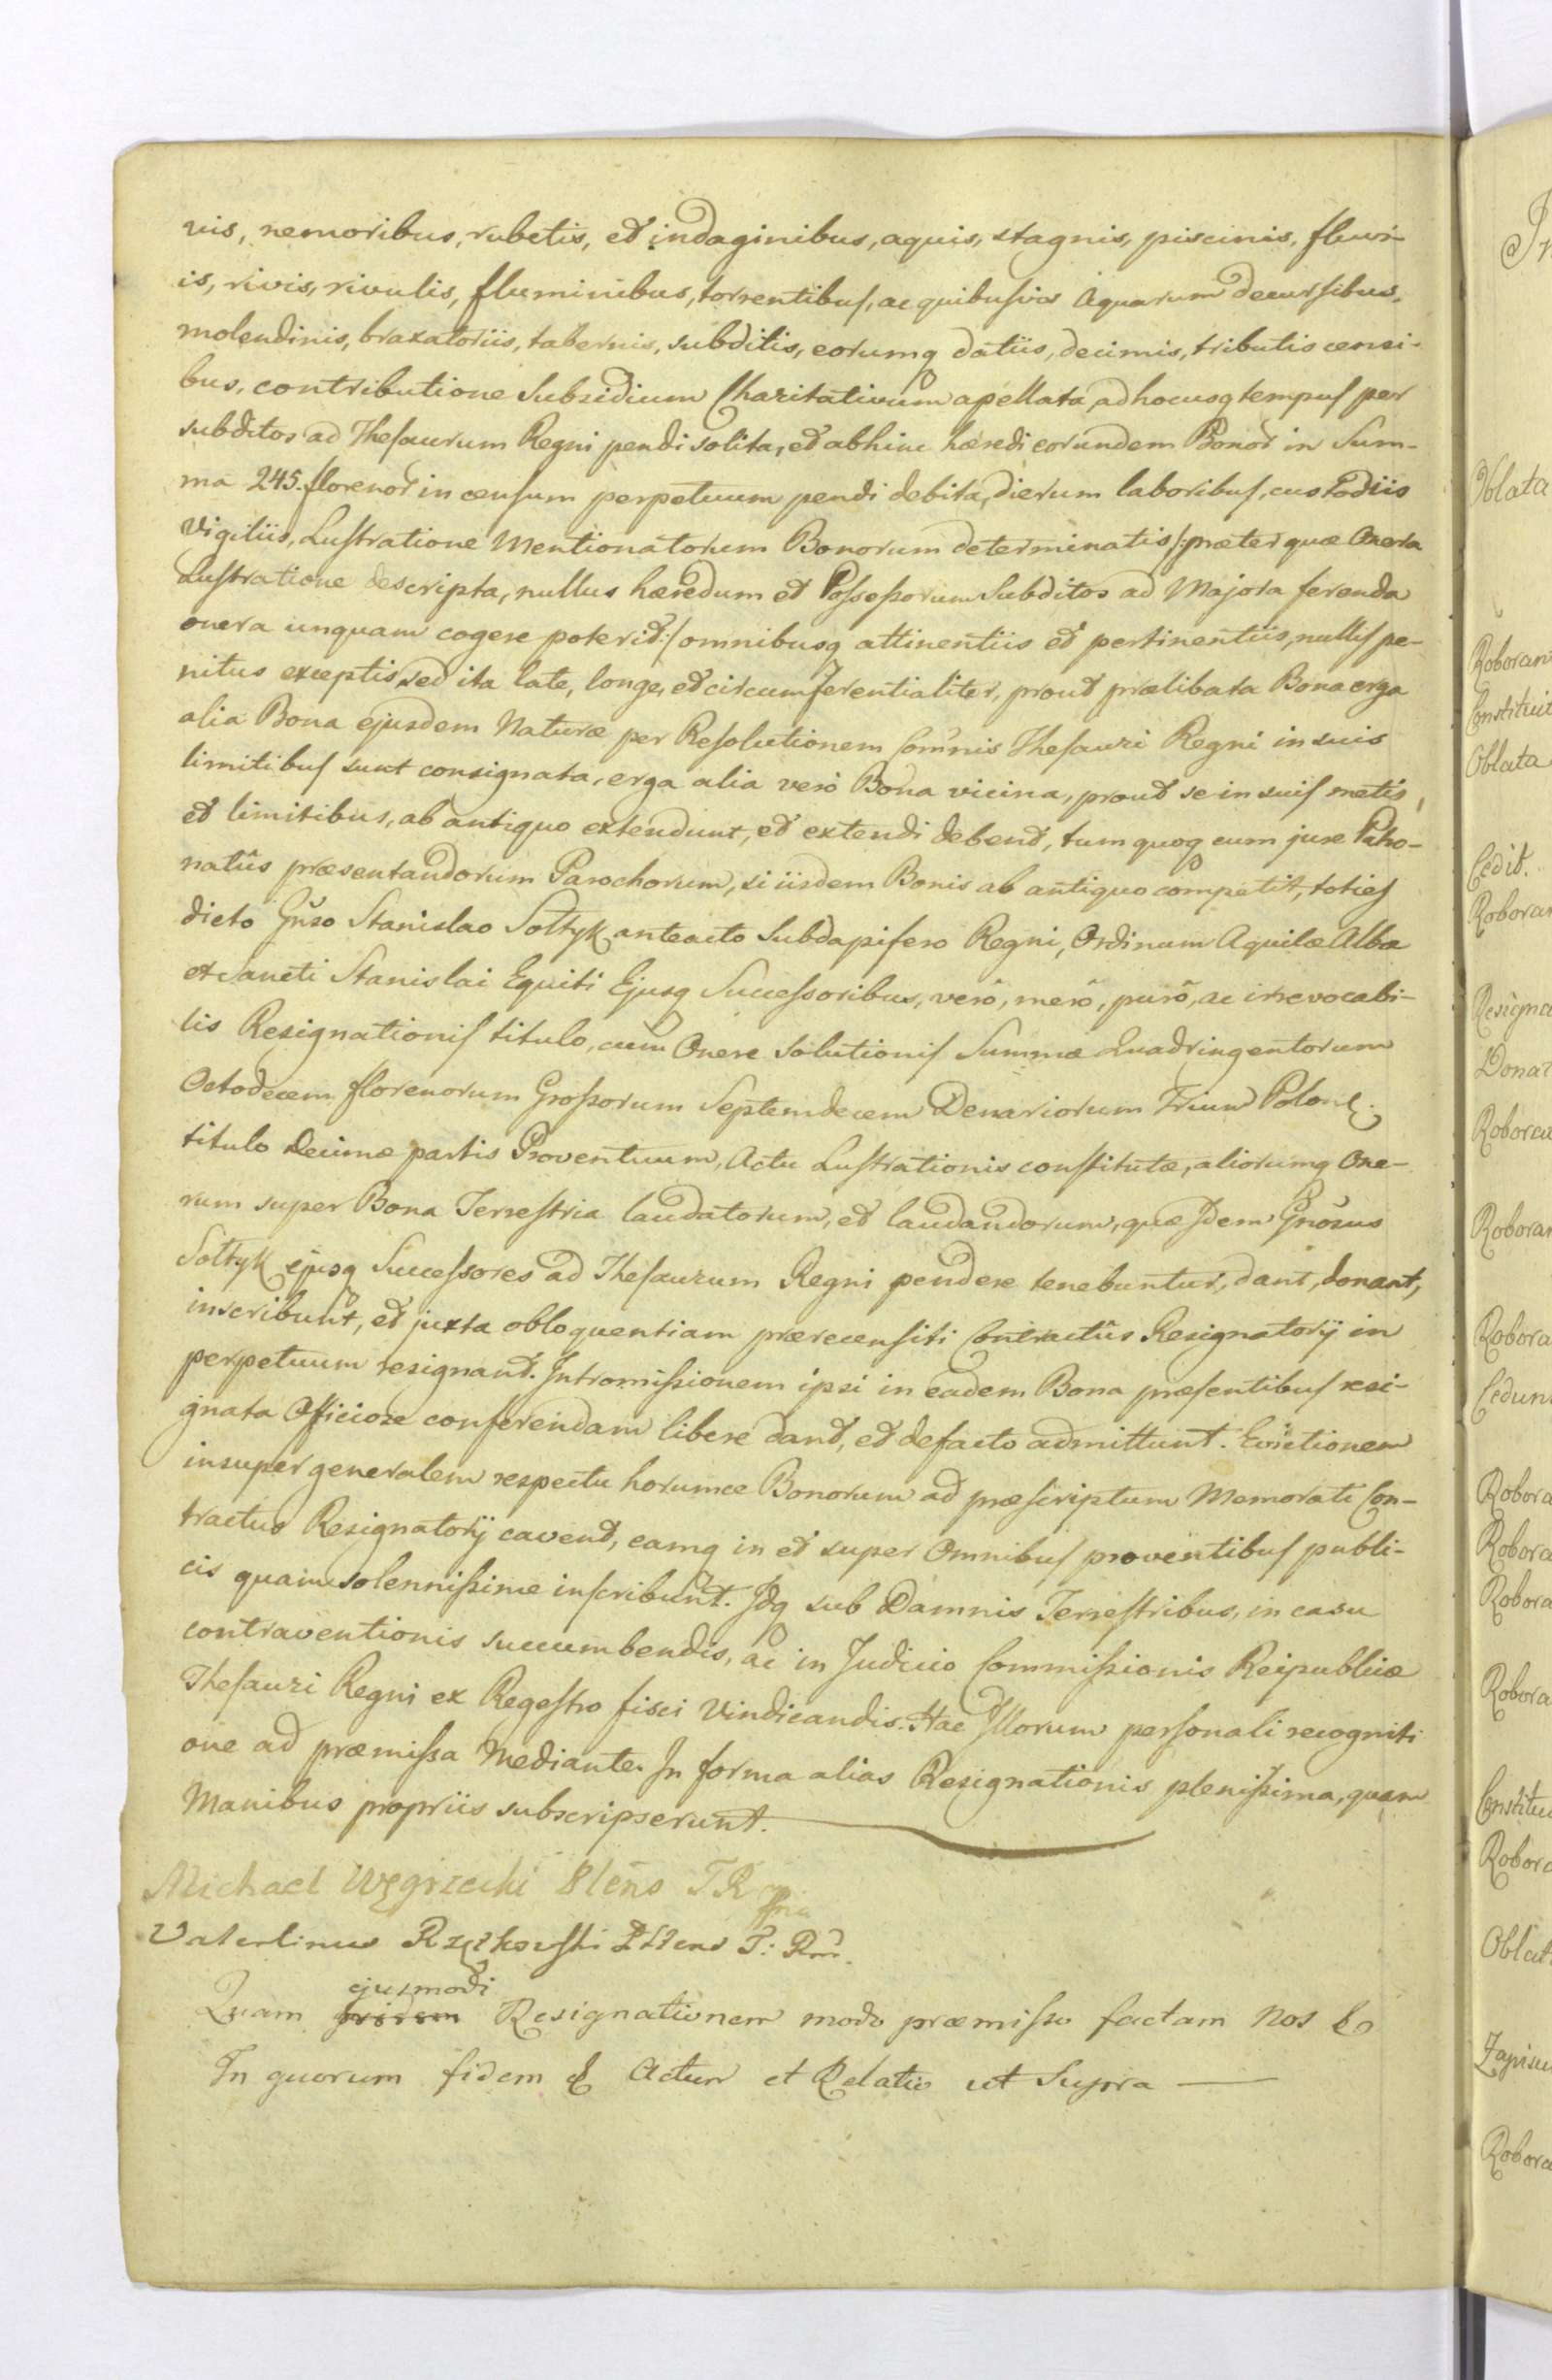 vis, nemoribus, rubetis, et indaginibus, aquis, stagnis, piscinis, fluvi-
is, rivis, rivulis, fluminibus, torrentibus, ac quibusvis Aquarum decursibus,
molendinis, braxatoriis, tabernis, subditis, eorumq datiis, decimis, tributis censi-
bus, contributione Subsidium Charitativum apellata, ad hocusq tempus per
subditos ad Thesaurum Regni pendi solita, et abhinc hæredi eorundem Bonor in Sum-
ma 245. florenor in censum perpetuum pendi debita, dierum laboribus, custodiis
Vigiliis, Lustratione Mentionatorum Bonorum determinatis /: præter quæ Onera
Lustratione descripta, nullus hæredum et Possessorum Subditos ad Majora ferenda
onera unquam cogere poterit :/ omnibusq attinentiis et pertinentiis, nullis pe-
nitus exceptis, sed ita late, longe, et circumferentialiter, prout prælibata Bona erga
alia Bona ejusdem Naturæ per Resolutionem Comnis Thesauri Regni in suis
limitibus sunt consignata, erga alia verò Bona vicina, prout se in suis metis,
et limitibus, ab antiquo extendunt, et extendi debent, tum quoq cum jure Patro-
natûs præsentandorum Parochorum, si iisdem Bonis ab antiquo competit, toties
dicto Gnso Stanislao Sołtyk anteacto Subdapifero Regni, Ordinum Aquilæ Albæ
et Sancti Stanislai Equiti Ejusq Successoribus, verô, merô, purô, ac irrevocabi-
lis Resignationis titulo, cum Onere solutionis Summæ Quadringentorum
Octodecem florenorum Grossorum Septemdecem Denariorum Trium Polon.
titulo Decimæ partis Proventuum, Actu Lustrationis constitutæ, aliorumq One-
rum super Bona Terrestria laudatorum, et laudandorum, quæ Idem Gnosus
Sołtyk ejusq Successores ad Thesaurum Regni pendere tenebuntur, dant, donant,
inscribunt, et juxta obloquentiam prærecensiti Contractûs Resignatorij in
perpetuum resignant. Intromissionem ipsi in eadem Bona præsentibus resi-
gnata Officiose conferendam libere dant, et defacto admittunt. Evictionem
insuper generalem respectu horumce Bonorum ad præscriptum Memorati Con-
tractus Resignatorij cavent, eamq in et super Omnibus proventibus publi-
cis quam solennissime inscribunt. Idq sub Damnis Terrestribus, in casu
contraventionis succumbendis, ac in Judicio Commissionis Reipublicæ
Thesauri Regni ex Regestro fisci Vindicandis. Hac Illorum personali recogniti
one ad præmissa Mediante. In forma alias Resignationis plenissima, quam
Manibus propriis subscripserunt.
Michael Węgrzecki Plens T R mpria
Valerlinus
ejusmodi
Quam Resignationem modo præmisso factam Nos
In quorum fidem & Actum et Relatio ut Supra
In
Oblata
Roboran
Constituit
Oblata
Cedit.
Roboran
Resigna
Donat
Robora
Roboran
Robora
Cedun
Robora
Robora
Robora
Robora
Constitu
Robora
Oblat
Zapisu
Robora